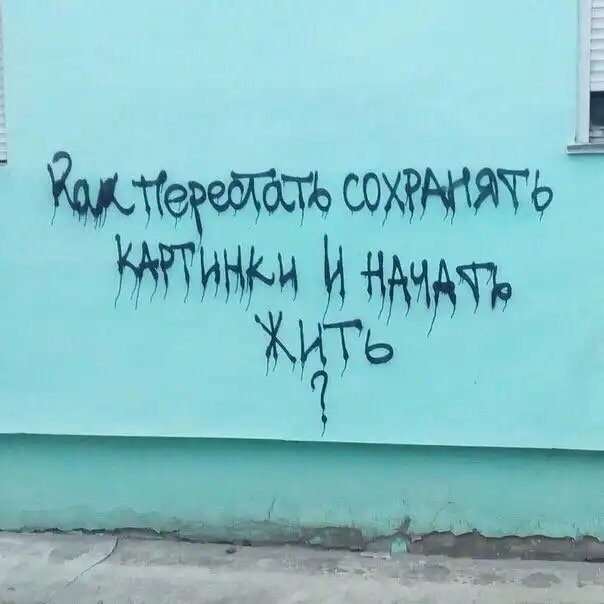 Как перестать СОХРАНЯТЬ
КАРТИНКИ И НАЧАТЬ
ЖИТЬ
?